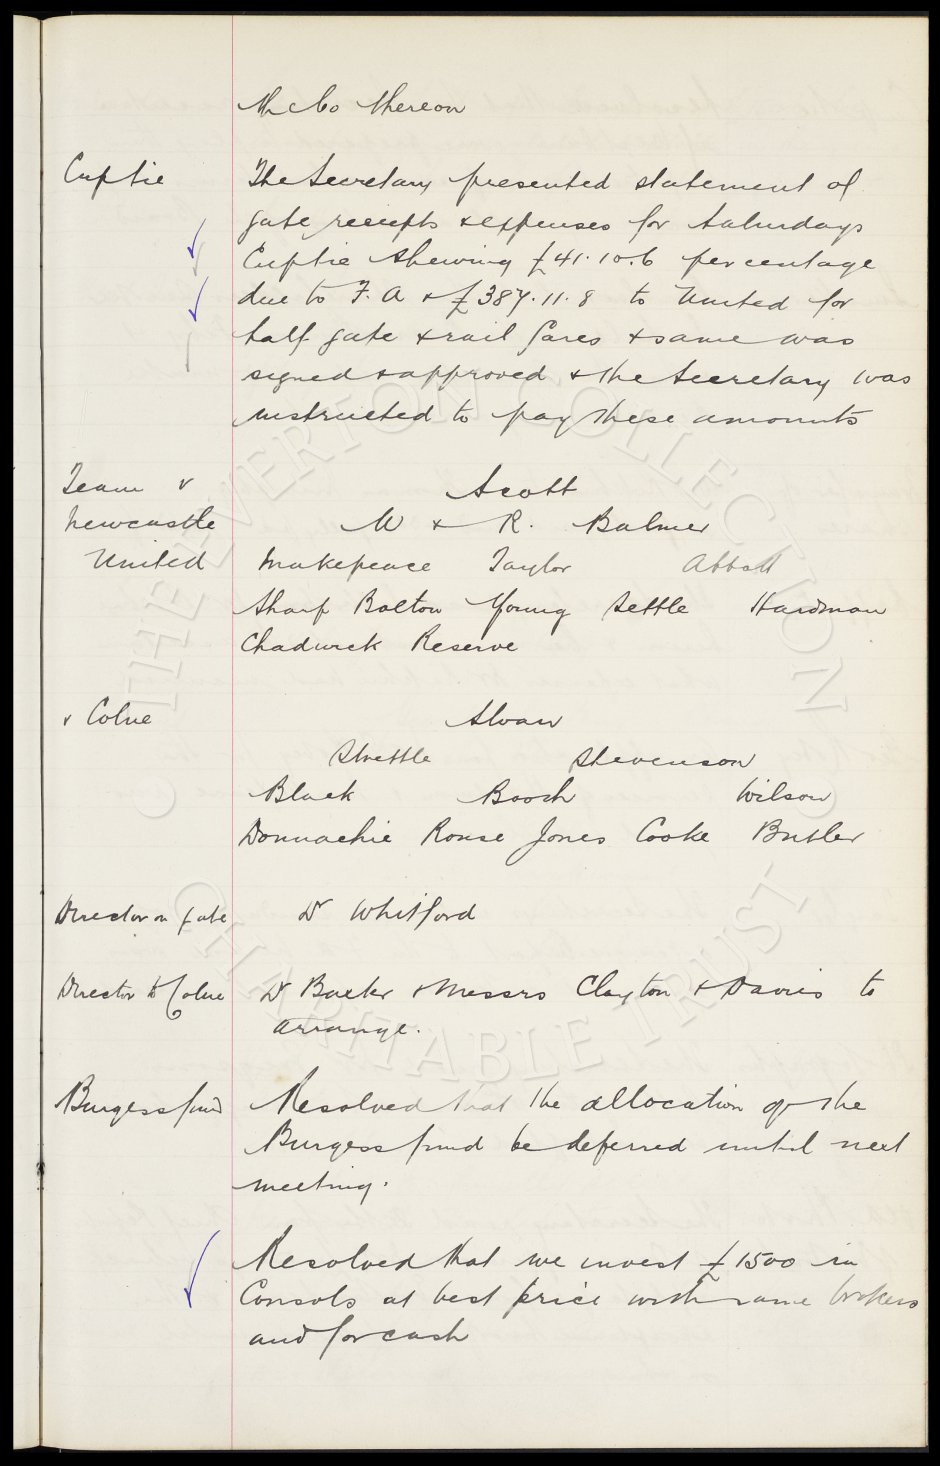 the Co thereon
Cuptie The Secretary presented statement of
gate receipts & expenses for Saturdays
Cuptie shewing £41.10.6 percentage
due to F.A & £387.11.8 to United for
half gate & rail fares & same was
signed & approved & the Secretary was
instructed to pay these amounts
Team v Scott
Newcastle W & R. Balmer
United Makepeace Taylor Abbott
Sharp Bolton Young Settle Hardman
Chadwick Reserve
v Colne Sloan
Strettle Stevenson
Black Booth Wilson
Donnachie Rouse Jones Cooke Butler
Director on gate Dr Whitford
Director to Colne Dr Baxter & Messrs Clayton & Davies to
arrange.
Burgess fund Resolved that the allocation of the
Burgess fund be deferred until next
meeting.
Resolved that we invest £1500 in
Consols at best price with same brokers
and for cash
© THE EVERTON COLLECTION
© CHARITABLE TRUST